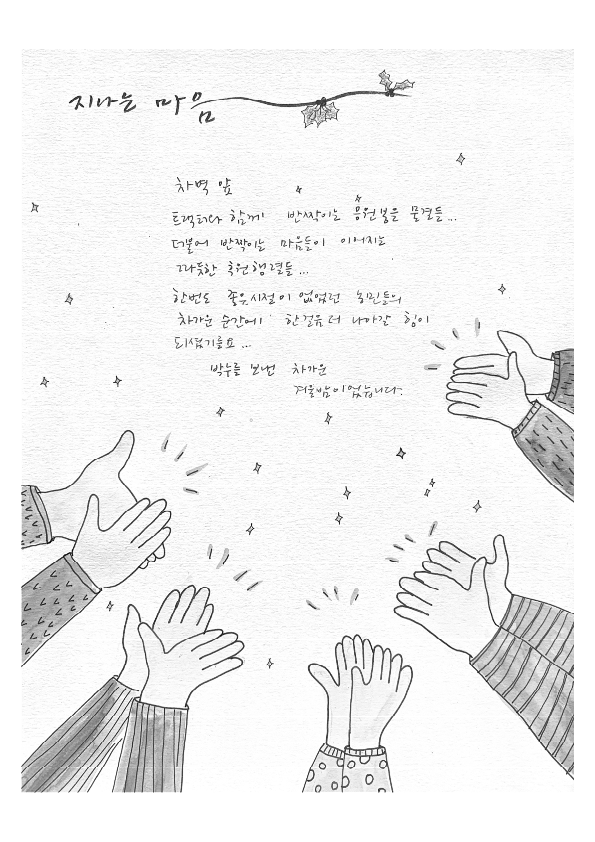 지나는 마음
차벽 앞
트랙터와 함께 반짝이는 응원봉을 물결들...
더불어 반짝이는 마음들이 이어지는
따듯한 후원행렬들...
한번도 좋은시절이 없었던 농민들의
차가운 순간에 한걸음 더 나아갈 힘이
되셨기를요...
박수를 보낸 차가운
겨울밤이었습니다.